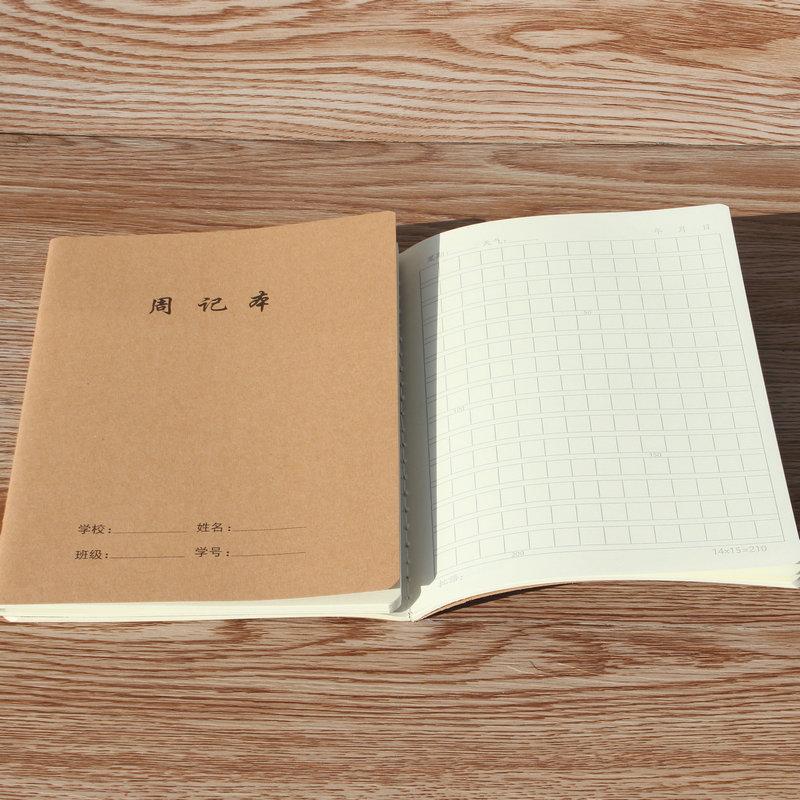 周记本
学校： 姓名：
班级： 学号：
星期 天气： 年 月 日
50
100
150
200
14x15=210